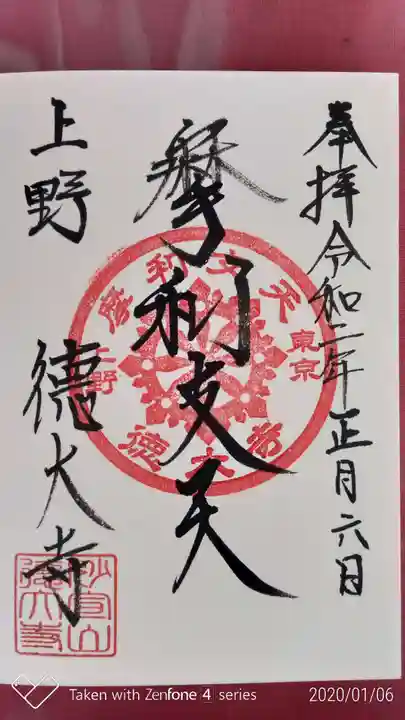 奉拝令和二年正月六日
摩利支天
上野 徳大寺
摩利支天
東京
上野
徳大寺
妙宣山
徳大寺
Taken with Zenfone 4 series
2020/01/06